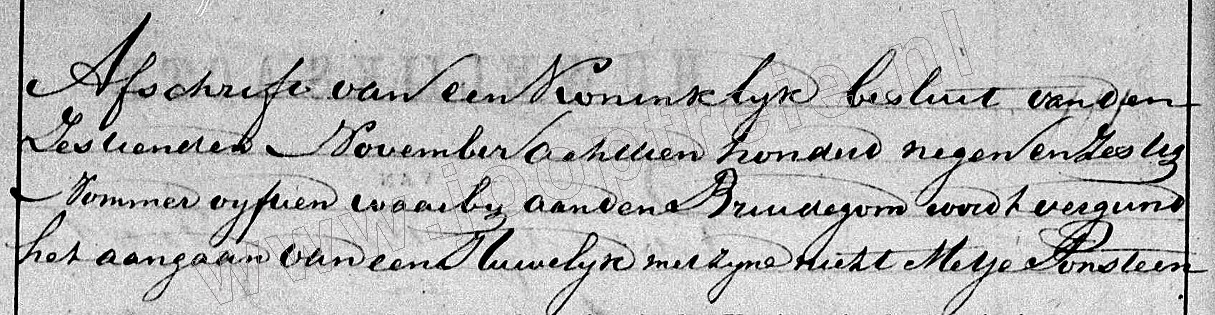 Afschrift van een Koninklyk besluit van den
Zestienden November achttien honderd negen en Zestig
Nommer vyftien waarby aan den Bruidegom wordt vergund
het aangaan van een Huwelyk met zyne nicht Metje Ponsteen
www.jooptrein.nl